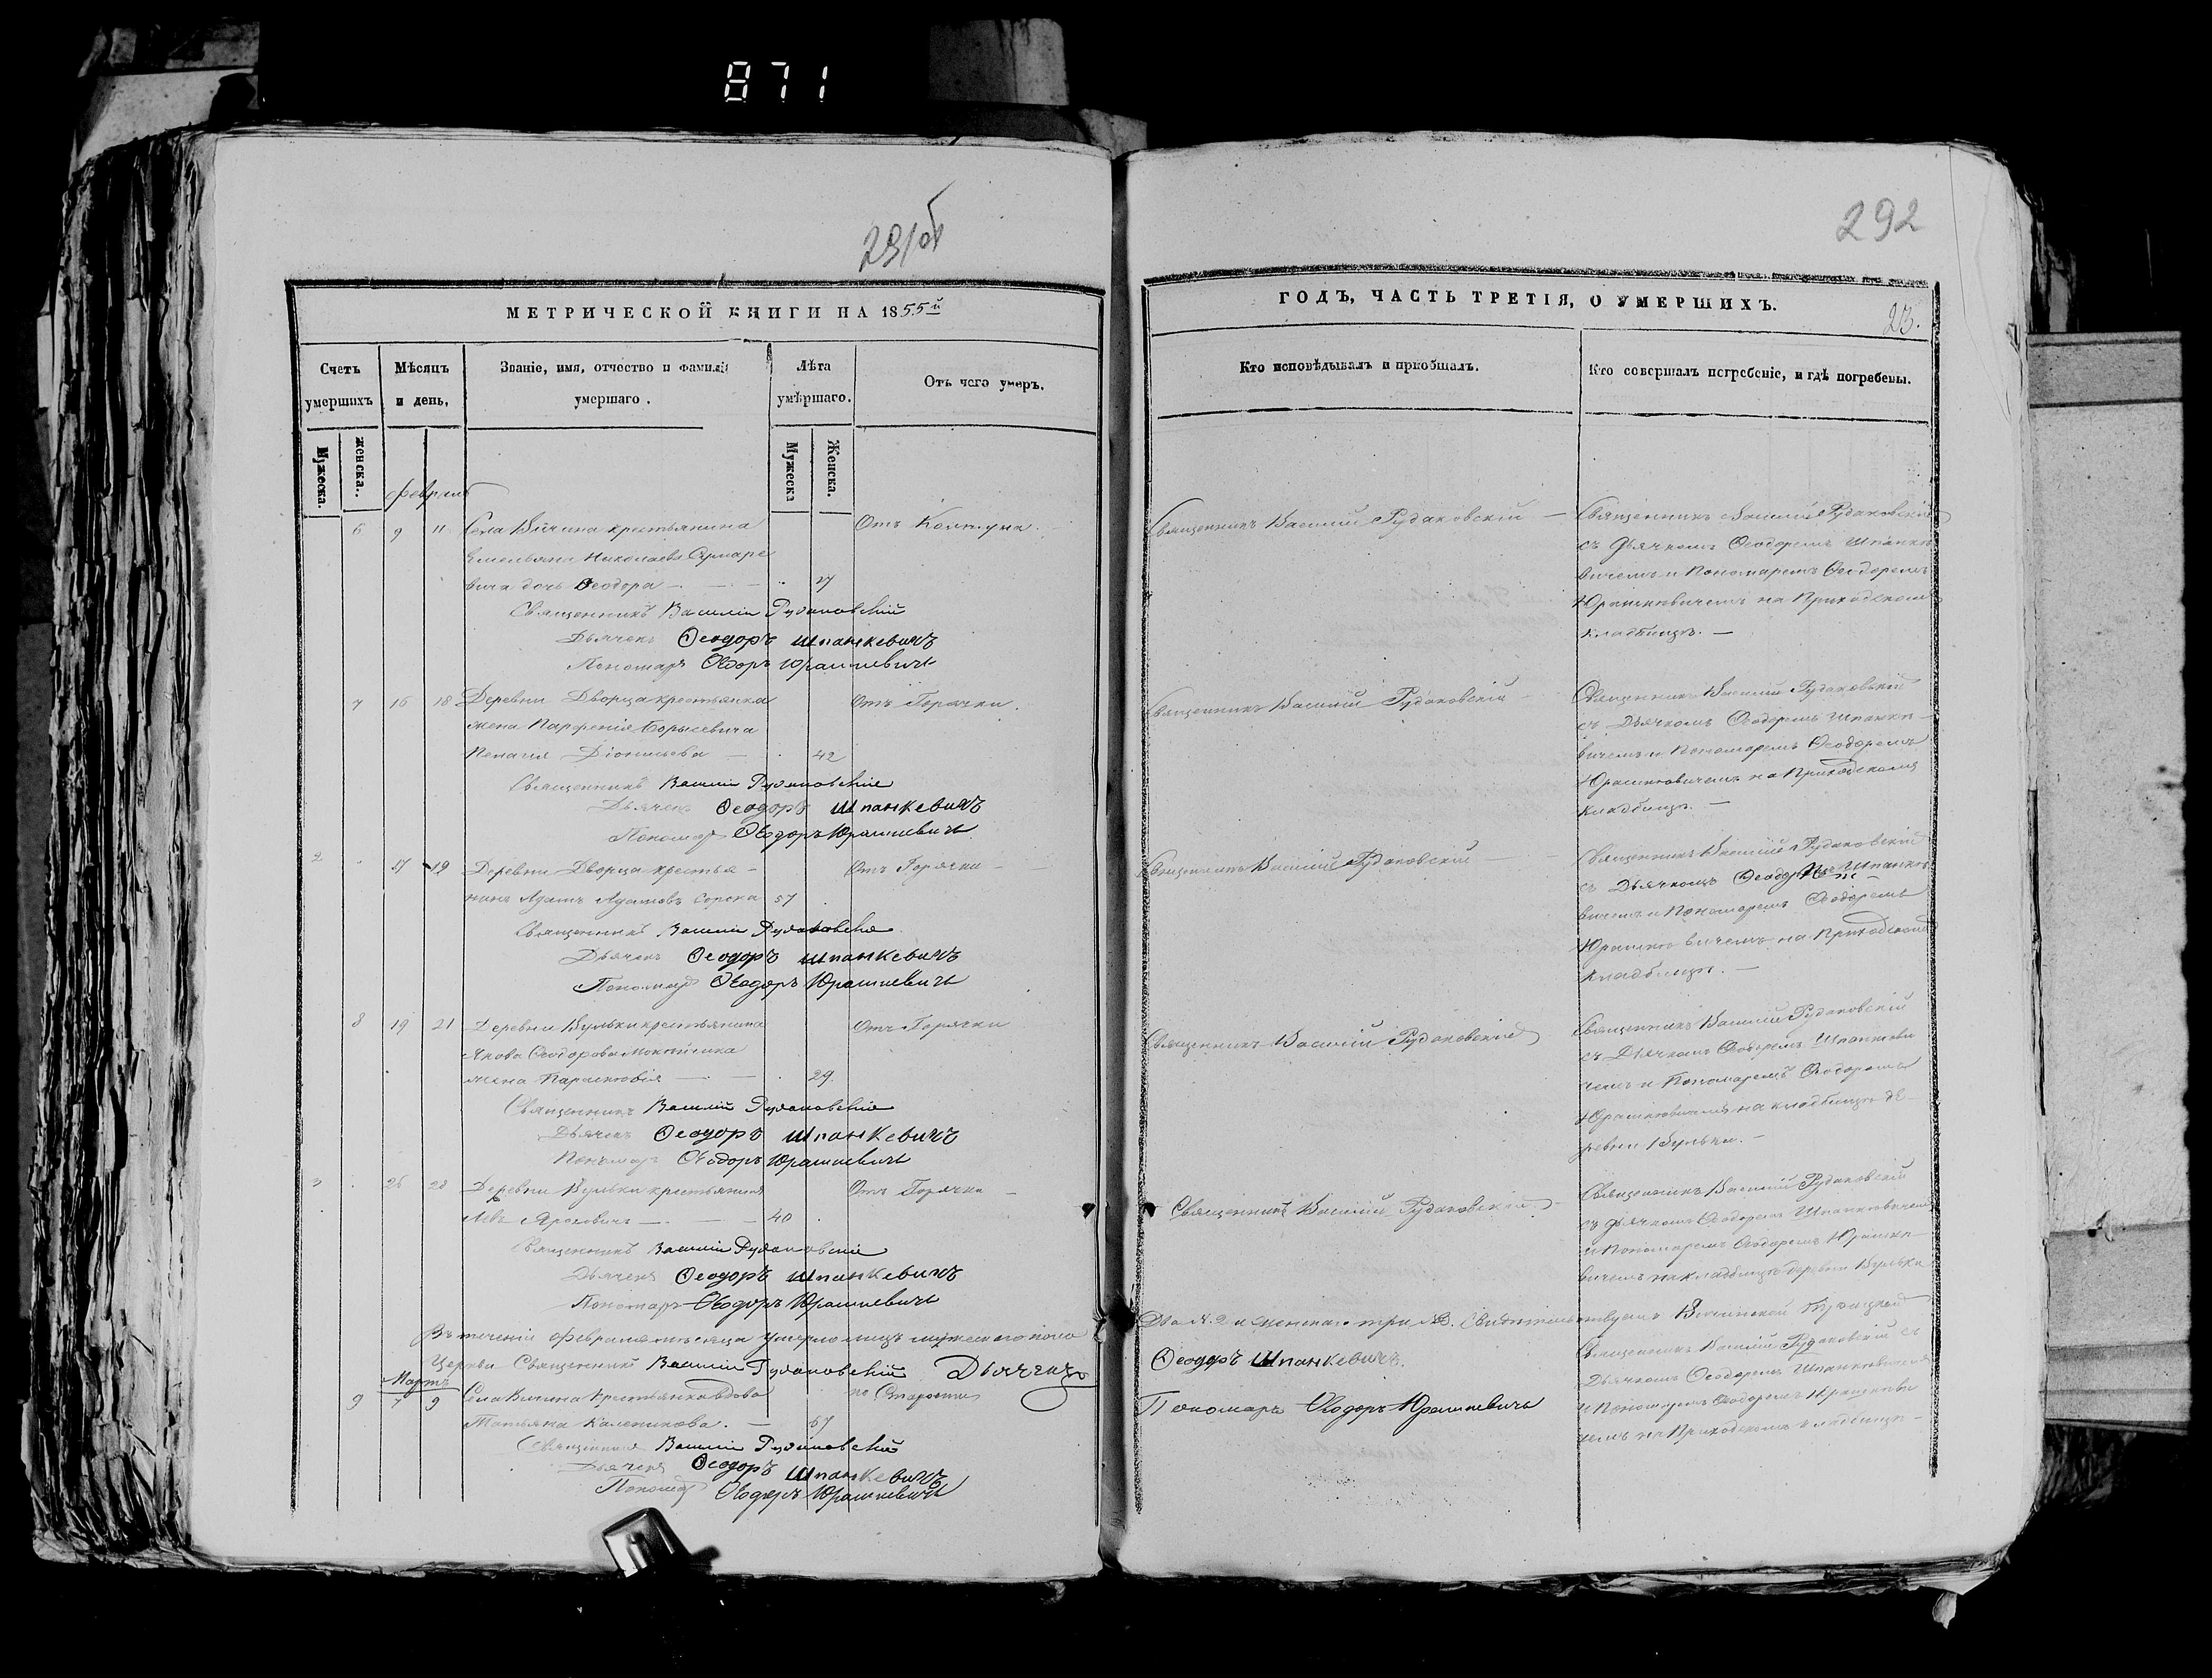 871
291об
292
МЕТРИЧЕСКОЙ КНИГИ НА 1855й
ГОДЪ, ЧАСТЬ ТРЕТІЯ, О УМЕРШИХЪ.
23.
Счетъ умершихъ
Мѣсяцъ и день.
Званіе, имя, отчество и фамилія умершаго.
Лѣта умѣршаго.
Отъ чего умеръ.
Кто исповѣдывалъ и пріобщалъ.
Кто совершалъ погребеніе, и гдѣ погребены.
Мужеска.
женска.
Мужеска
Женска.
Февраль
6 9 11 Села Вичина крестьянина
Отъ Колтуна.
Емельяна Николаева
вича дочь Ѳеодора 27
Священникъ Василій Рудаковскій
Дьячекъ Ѳеодоръ Шпанкевичъ
Пономарь Ѳеодоръ Юрашкевичъ
Священникъ Василій Рудаковскій
Священникъ Василій Рудаковскій
съ Дьячкомъ Ѳеодоромъ Шпанке
вичемъ и Пономаремъ Ѳеодоромъ
Юрашкевичемъ на Приходскомъ
кладбищѣ.
7 16 18 Деревни Дворца крестьянка
Отъ Горячки.
жена Парфенія Борысевича
Пелагія Діонисьева 42
Священникъ Василій Рудаковскій
Дьячекъ Ѳеодоръ Шпанкевичъ
Пономарь Ѳеодоръ Юрашкевичъ
Священникъ Василій Рудаковскій
Священникъ Василій Рудаковскій
съ Дьячкомъ Ѳеодоромъ Шпанке
вичемъ и Пономаремъ Ѳеодоромъ
Юрашкевичемъ на Приходскомъ
кладбищѣ.
2 17 19 Деревни Дворца крестья-
Отъ Горячки
нинъ Адамъ Адамовъ Сорока 57
Священникъ Василій Рудаковскій
Дьячекъ Ѳеодоръ Шпанкевичъ
Пономарь Ѳеодоръ Юрашкевичъ
Священникъ Василій Рудаковскій
Священникъ Василій Рудаковскій
съ Дьячкомъ Ѳеодоромъ Шпанке
вичемъ и Пономаремъ Ѳеодоромъ
Юрашкевичемъ на Приходскомъ
кладбищѣ.
8 19 21 Деревни Вульки крестьянина
Отъ Горячки
Якова Ѳеодорова
жена Параскевія 29.
Священникъ Василій Рудаковскій
Дьячекъ Ѳеодоръ Шпанкевичъ
Пономарь Ѳеодоръ Юрашкевичъ
Священникъ Василій Рудаковскій
Священникъ Василій Рудаковскій
съ Дьячкомъ Ѳеодоромъ Шпанкеви
чемъ и Пономаремъ Ѳеодоромъ
Юрашкевичемъ на кладбищѣ де-
ревни Вульки.
3 26 28 Деревни Вульки крестьянинъ
Отъ Горячки
40
Священникъ Василій Рудаковскій
Дьячекъ Ѳеодоръ Шпанкевичъ
Пономарь Ѳеодоръ Юрашкевичъ
Священникъ Василій Рудаковскій
Священникъ Василій Рудаковскій
съ Дьячкомъ Ѳеодоромъ Шпанкевичемъ
и Пономаремъ Ѳеодоромъ Юрашке-
вичемъ на кладбищѣ деревни Вульки
Въ теченіи Февраля мѣсяца умерло лицъ мужескаго пола
два № 2 и женскаго три № 3. Свидѣтельствуемъ Вичинской Троицкой
Церкви Священникъ Василій Рудаковскій Дьячекъ
Ѳеодоръ Шпанкевичъ.
Пономарь Ѳеодоръ Юрашкевичъ
Мартъ
9 7 9 Села Вичина Крестьянка вдова
по Старости
Татьяна Каленикова. 67
Священникъ Василій Рудаковскій
Дьячекъ Ѳеодоръ Шпанкевичъ
Пономарь Ѳеодоръ Юрашкевичъ
Священникъ Василій Рудаковскій съ
Дьячкомъ Ѳеодоромъ Шпанкевичемъ
и Пономаремъ Ѳеодоромъ Юрашкеви
чемъ на Приходскомъ кладбищѣ